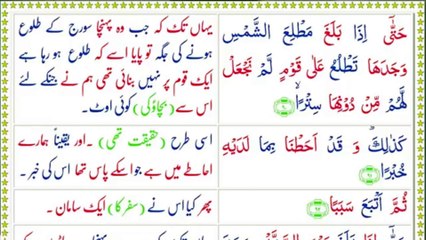 حَتّٰۤی اِذَا بَلَغَ مَطْلِعَ الشَّمْسِ
وَجَدَهَا تَطْلُعُ عَلٰی قَوْمٍ لَّمْ نَجْعَلْ
لَّهُمْ مِّنْ دُوْنِهَا سِتْرًا ﴿۹۰﴾
یہاں تک کہ جب وہ پہنچا سورج کے طلوع
ہونے کی جگہ تو پایا اسے کہ طلوع ہو رہا ہے
ایک قوم پر نہیں بنائی تھی ہم نے جنکے لئے
اس سے (بچاؤ کی) کوئی اوٹ۔
كَذٰلِكَ ؕ وَ قَدْ اَحَطْنَا بِمَا لَدَیْهِ
خُبْرًا ﴿۹۱﴾
اسی طرح (حقیقت تھی)۔ اور یقیناً ہمارے
احاطے میں ہے جو اسکے پاس تھا اس کی خبر۔
ثُمَّ اَتْبَعَ سَبَبًا ﴿۹۲﴾
پھر کیا اس نے (سفر کا) ایک سامان۔